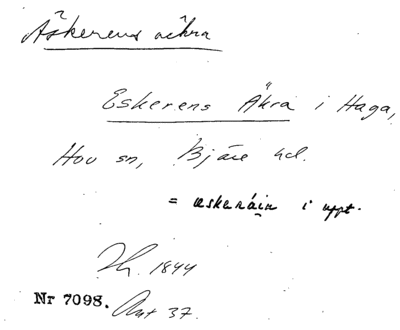 Äskerens åkra
Eskerens Åkra i Haga,
Hov sn, Bjäre hd.
= i uppt.
1844
Nr 7098. Ant 37.